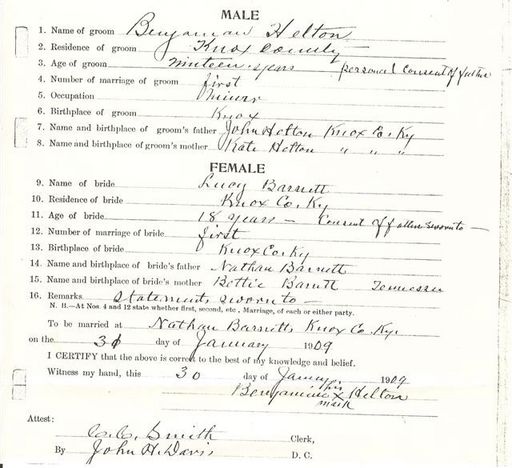 MALE
1. Name of groom Benjaman Helton
2. Residence of groom Knox County
3. Age of groom nineteen years personal Consent of father
4. Number of marriage of groom first
5. Occupation Miner
6. Birthplace of groom Knox
7. Name and birthplace of groom's father John Helton Knox Co. Ky
8. Name and birthplace of groom's mother Kate Helton " " "
FEMALE
9. Name of bride Lucy Barnett
10. Residence of bride Knox Co. Ky
11. Age of bride 18 years — Consent of father sworn to —
12. Number of marriage of bride first
13. Birthplace of bride Knox Co. Ky
14. Name and birthplace of bride's father Nathan Barnett
15. Name and birthplace of bride's mother Bettie Barnett Tennessee
16. Remarks Statements sworn to —
N. B.—At Nos. 4 and 12 state whether first, second, etc., Marriage, of each or either party.
To be married at Nathan Barnetts, Knox Co. Ky.
on the 30 day of January 1909
I CERTIFY that the above is correct to the best of my knowledge and belief.
Witness my hand, this 30 day of January 1909
his
Benjamine x Helton
mark
Attest:
Smith Clerk,
By John H. Davis D. C.